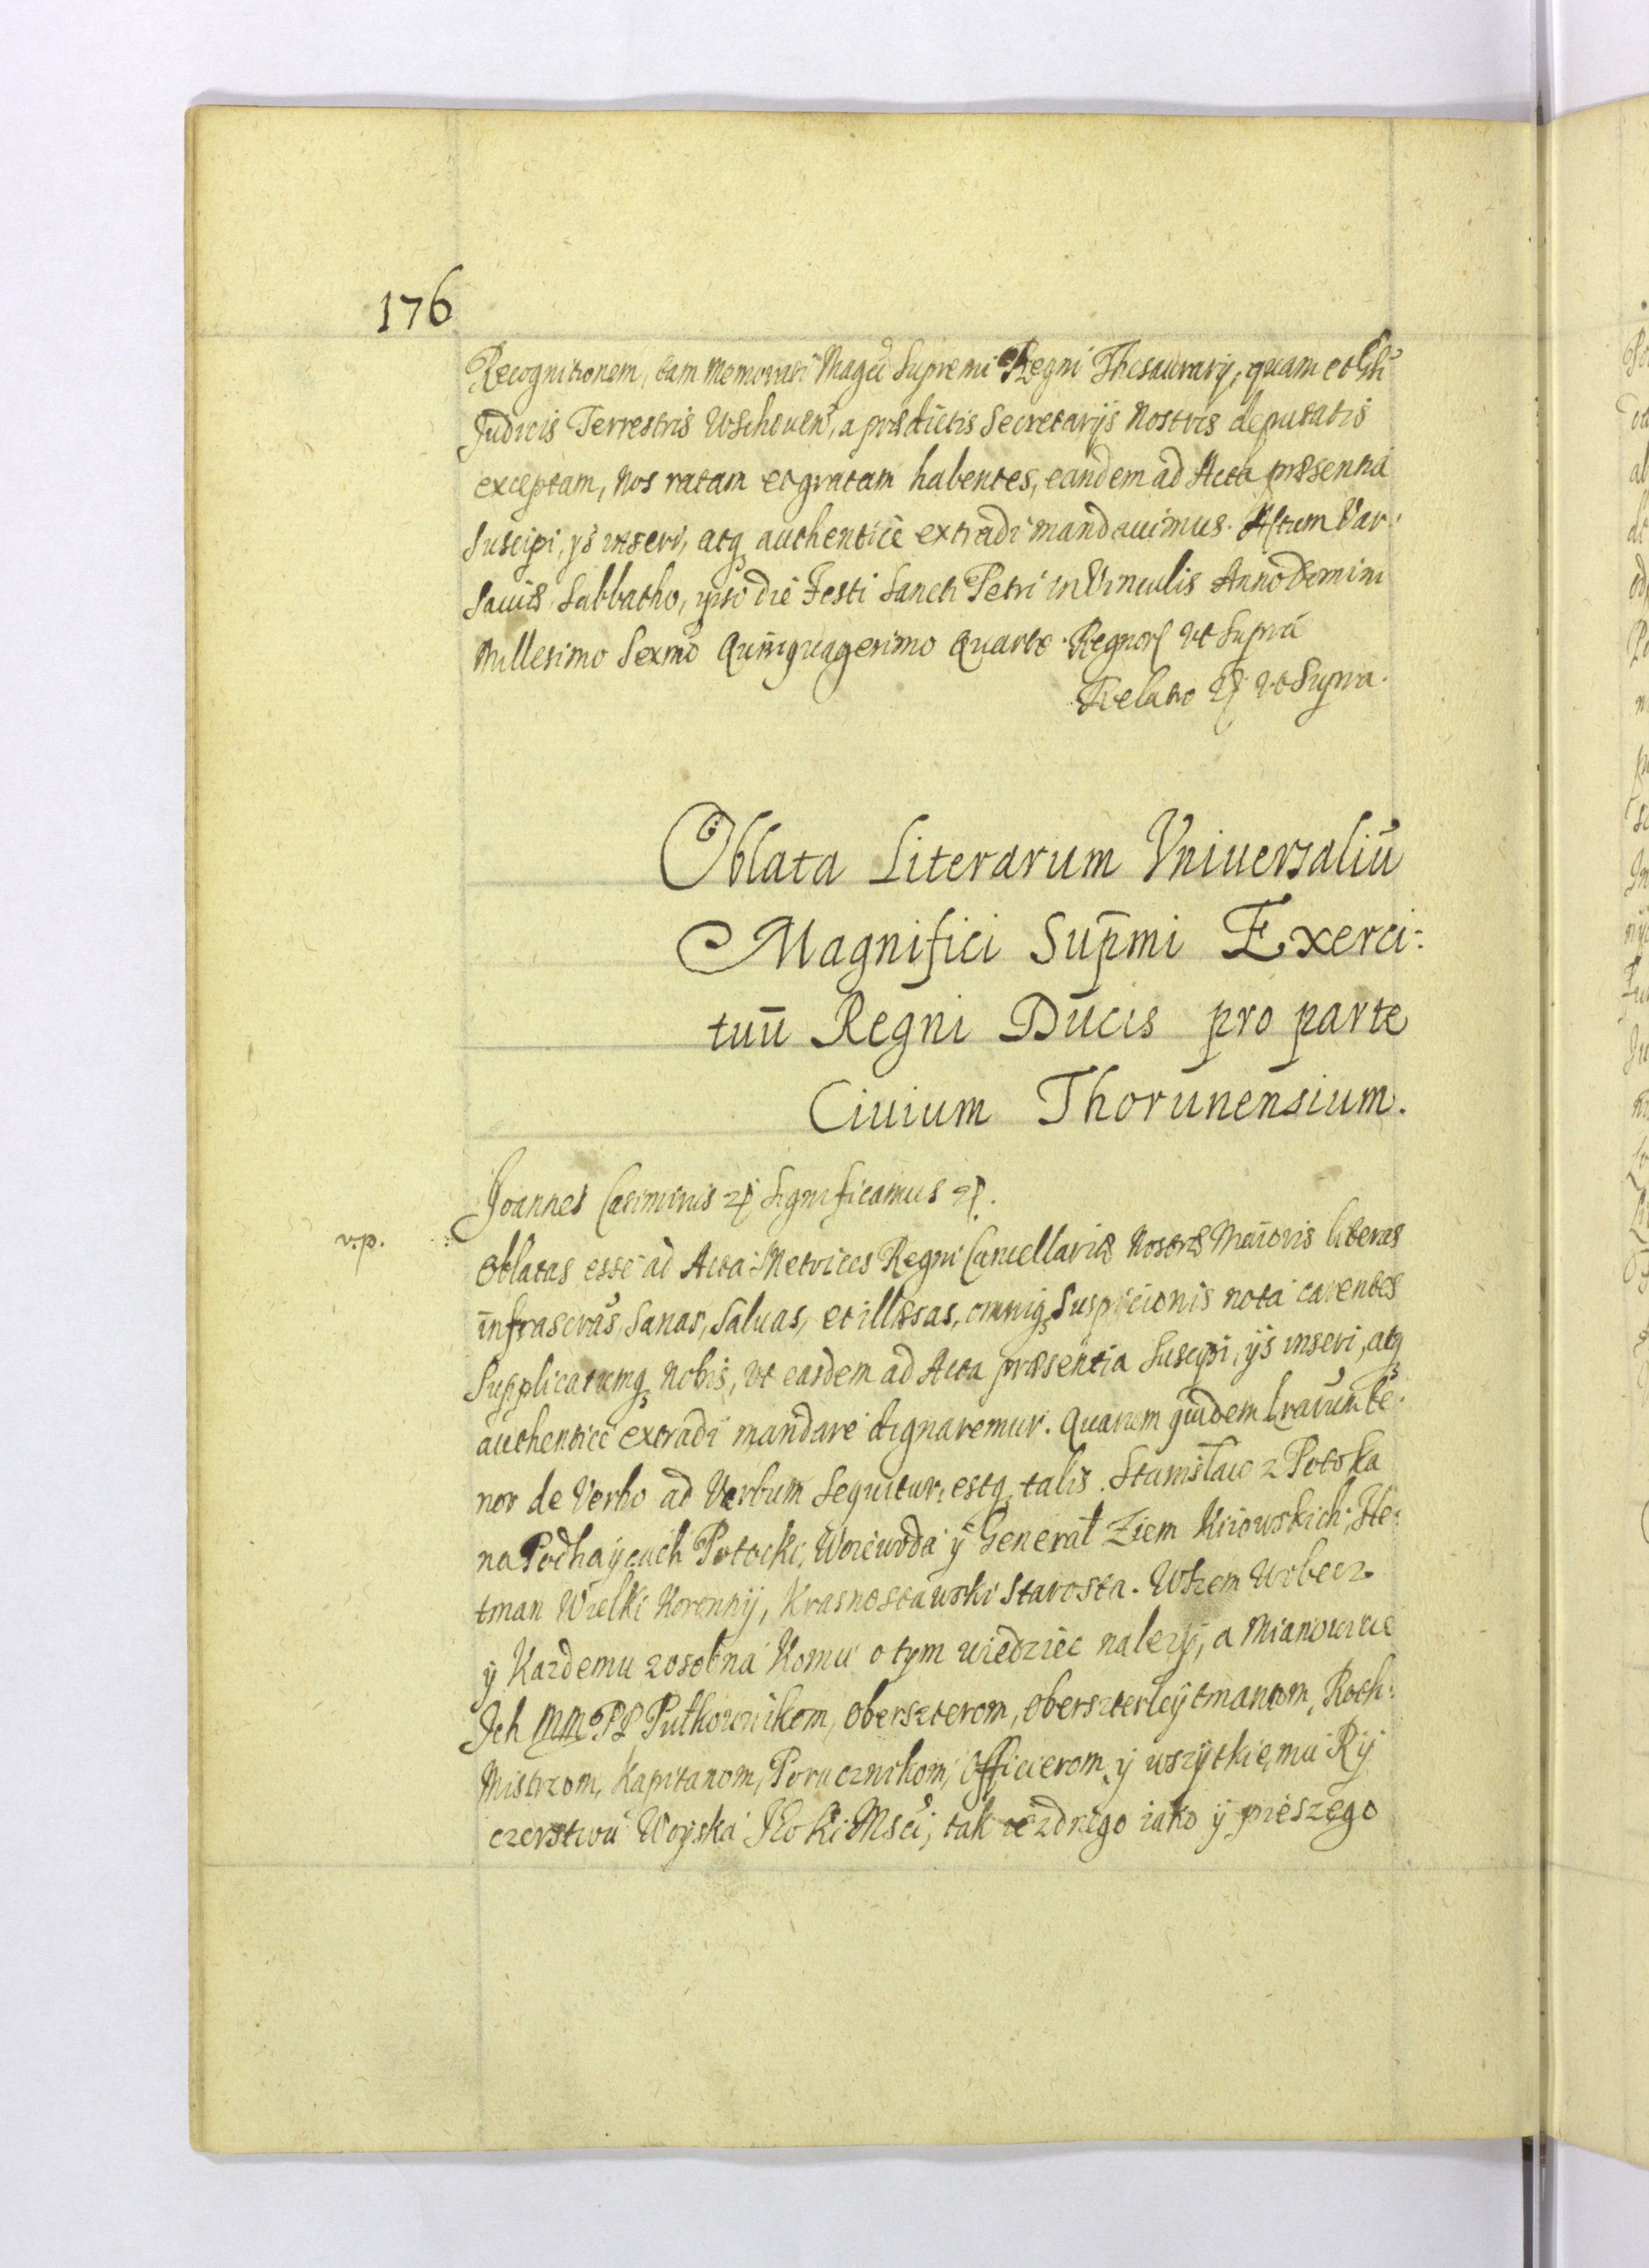 176
Recognitionem, tam Memorati Magci Supremi Regni Thesaurarij, quam et
Judicis Terrestris Wschouen, a prædictis Secretarijs Nostris deputatis
exceptam, Nos ratam et gratam habentes, eandem ad Acta præsentia
Suscipi, ijs inseri, atq authenticè extradi mandauimus. Actum Var:
sauiæ Sabbatho, ipso die Festi Sancti Petri in Vinculis Anno Domini
Millesimo Sexmo Quinquagesimo Quarto. Regnor Vt Supra
Relatio Vt Supra.
Oblata Literarum Vniuersaliū
Magnifici Supmi Exerci:
tuū Regni Ducis pro parte
Ciuium Thorunensium.
Joannes Casimirus Significamus
Oblatas esse ad Acta Metrices Regni Cancellariæ Nostræ Maioris literas
infrascrās, Sanas, Saluas, et illæsas, omniq Suspicionis nota carentes
Supplicatumq Nobis, vt easdem ad Acta præsentia Suscipi, ijs inseri, atq
authenticè extradi mandare dignaremur. Quarum quidem Lrarum te:
nor de Verbo ad Verbum Sequitur, estq talis. Stanisław z Potoka
na Podhaycach Potocki, Woiewoda ÿ Generał Ziem Kiiowskich, He:
tman Wielki Koronnij, Krasnostawski Starosta. Wszem Wobecz
ÿ Kazdemu zosobna Komu o tym wiedziec nalezÿ, a Mianowicie
Ich MM PP Pułkownikom, Oberszterom, Oberszterleÿtmantom, Roth:
Mistrzom, Kapitanom, Porucznikom, Officierom, ÿ wszÿtkiemu Rÿ
czerstwu Woÿska JKo Ki Msci, tak iezdnego iako ÿ pieszego